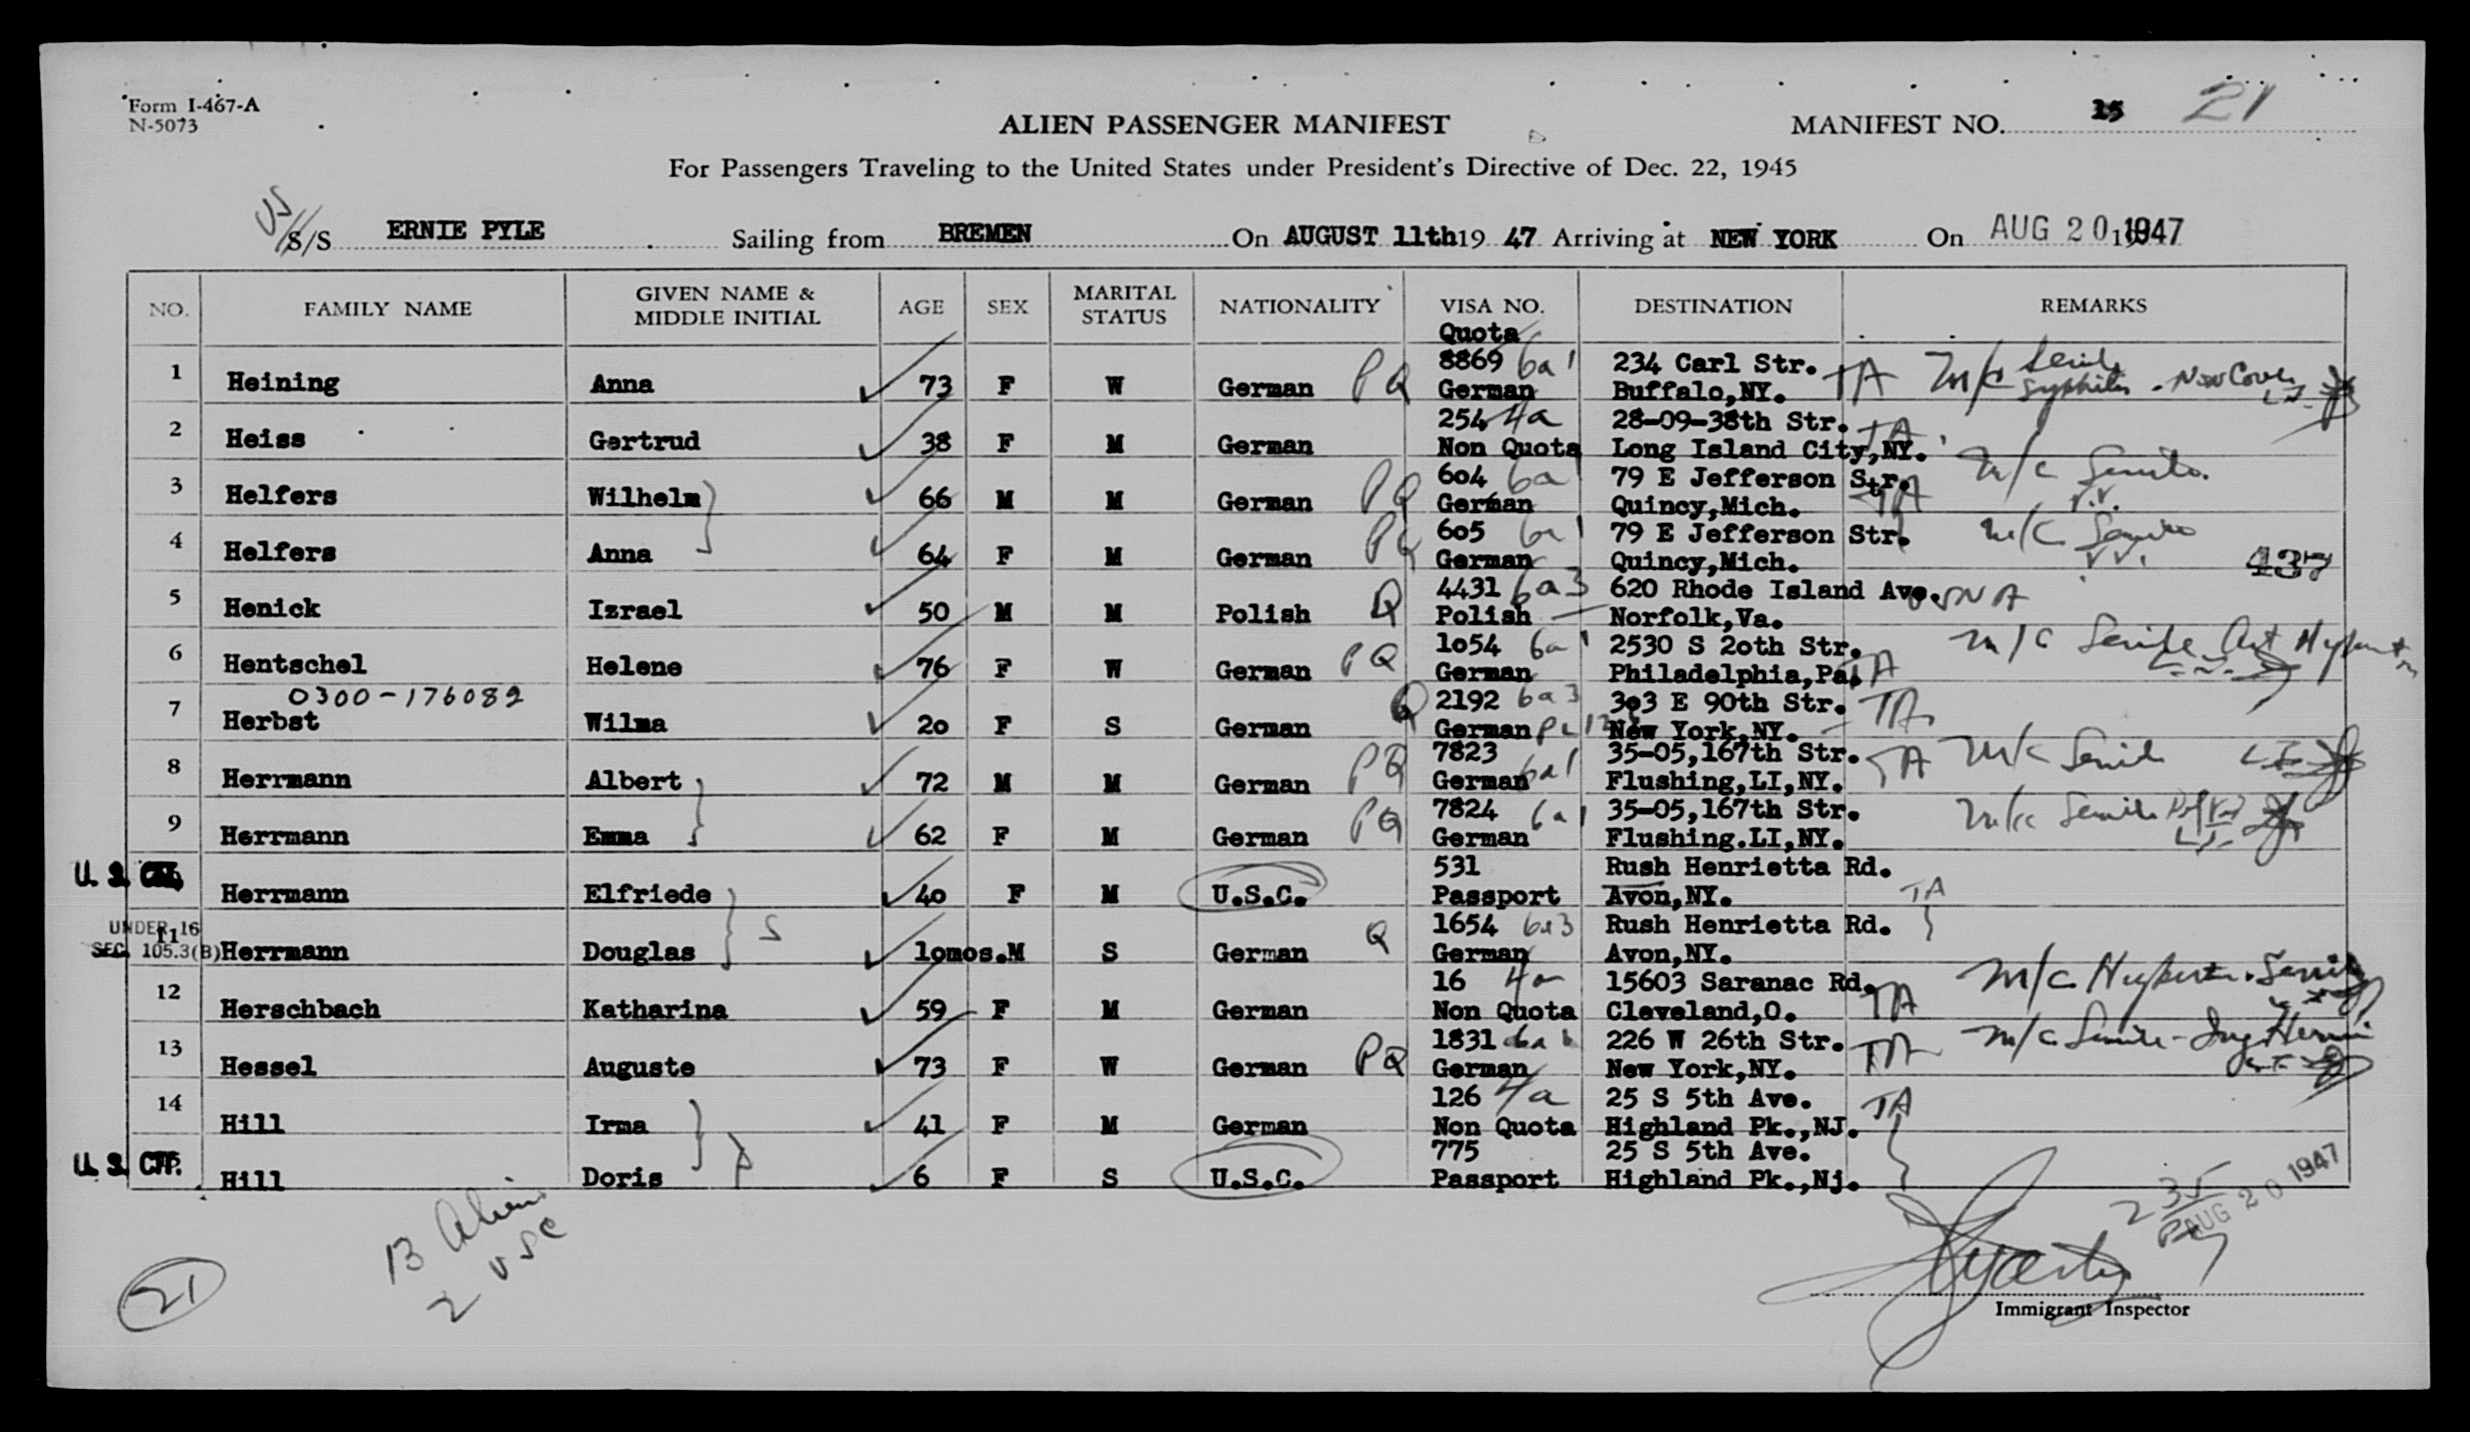 Form I-467-A
N-5073
ALIEN PASSENGER MANIFEST
MANIFEST NO. 15 21
For Passengers Traveling to the United States under President's Directive of Dec. 22, 1945
US
S/S ERNIE PYLE Sailing from BREMEN On AUGUST 11th 19 47 Arriving at NEW YORK On AUG 20 1947
NO. FAMILY NAME GIVEN NAME & MIDDLE INITIAL AGE SEX MARITAL STATUS NATIONALITY VISA NO. DESTINATION REMARKS
Quota
8869 6a1 234 Carl Str.
1 Heining Anna 73 F W German PQ German Buffalo,NY. TA M/C Senile Syphilis
254 4a 28-09-38th Str.
2 Heiss Gertrud 38 F M German Non Quota Long Island City,NY. TA
604 6a1 79 E Jefferson Str.
3 Helfers Wilhelm 66 M M German PQ German Quincy,Mich. TA M/C Senile
605 6a1 79 E Jefferson Str.
4 Helfers Anna 64 F M German PQ German Quincy,Mich. M/C Senile 437
4431 6a3 620 Rhode Island Ave.
5 Henick Izrael 50 M M Polish Q Polish Norfolk,Va. USNA
1o54 6a1 2530 S 2oth Str.
6 Hentschel Helene 76 F W German PQ German Philadelphia,Pa. TA M/C Senile
0300-176082
2192 6a3 3o3 E 90th Str.
7 Herbst Wilma 2o F S German Q German New York,NY. TA
7823 6a1 35-05,167th Str.
8 Herrmann Albert 72 M M German PQ German Flushing,LI,NY. TA M/C Senile
7824 6a1 35-05,167th Str.
9 Herrmann Emma 62 F M German PQ German Flushing.LI,NY. M/C Senile
531 Rush Henrietta Rd.
U. S. CIT. Herrmann Elfriede 4o F M U.S.C. Passport Avon,NY. TA
UNDER 16
SEC. 105.3(B)
1654 6a3 Rush Henrietta Rd.
11 Herrmann Douglas 1omos. M S German Q German Avon,NY.
16 4a 15603 Saranac Rd.
12 Herschbach Katharina 59 F M German Non Quota Cleveland,O. TA M/C Senile
1831 6a 226 W 26th Str.
13 Hessel Auguste 73 F W German PQ German New York,NY. TA M/C Senile
126 4a 25 S 5th Ave.
14 Hill Irma 41 F M German Non Quota Highland Pk.,NJ. TA
775 25 S 5th Ave.
U. S. CIT. Hill Doris 6 F S U.S.C. Passport Highland Pk.,Nj.
13 Aliens
2 USC
21
235
AUG 20 1947
Immigrant Inspector